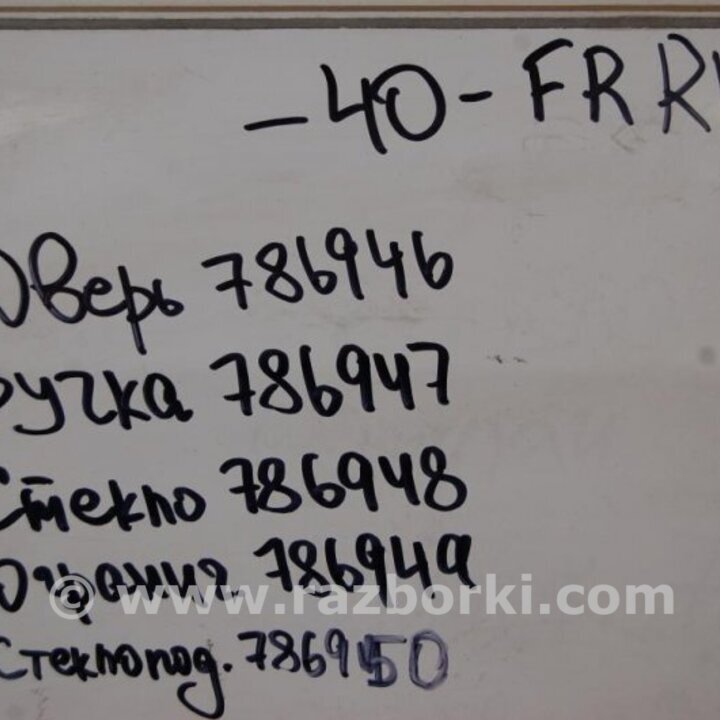 -40- FR R
Дверь 786946
Ручка 786947
Стекло 786948
786949
© www.razborki.com
Стеклопод. 786950